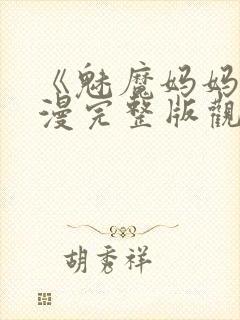 《魅魔妈妈
漫完整版觀
胡秀祥